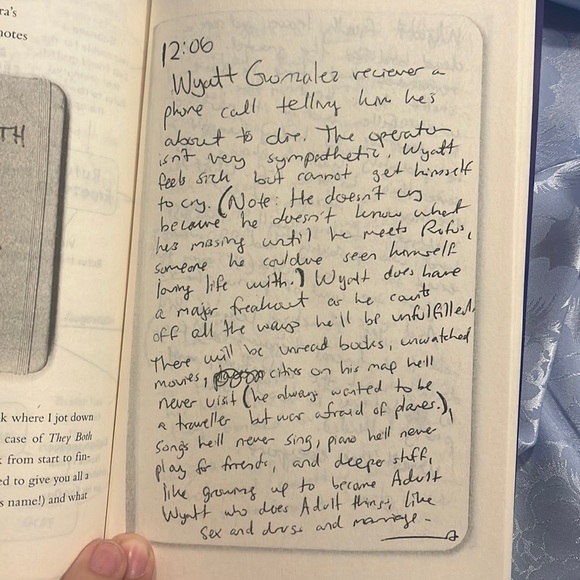 ra's
notes
TH
k where I jot down
case of They Both
from start to fin-
ed to give you all a
s name!) and what
12:06
Wyatt Gonzalez reciever a
phone call telling him he's
about to die. The operator
isn't very sympathetic. Wyatt
feels sick but cannot get himself
to cry. (Note: He doesn't cry
because he doesn't know what
he's missing until he meets Rufus,
someone he could've seen himself
loving life with.) Wyatt does have
a major freakout as he counts
off all the ways he'll be unfulfilled.
There will be unread books, unwatched
movies, cities on his map he'll
never visit (he always wanted to be
a traveller but was afraid of planes.),
songs he'll never sing, piano he'll never
play for friends, and deeper stuff,
like growing up to become Adult
Wyatt who does Adult things, like
sex and drugs and marriage.